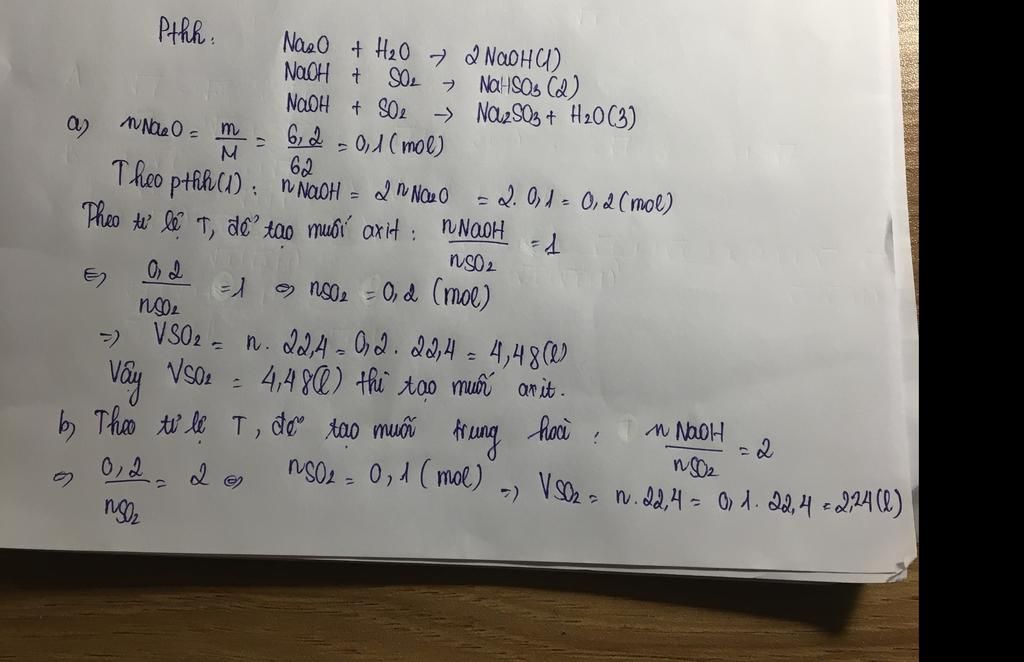 Pthh:
Na₂O + H₂O → 2NaOH(1)
NaOH + SO₂ → NaHSO₃(2)
NaOH + SO₂ → Na₂SO₃ + H₂O(3)
a) nNa₂O = m/M = 6,2/62 = 0,1(mol)
Theo pthh(1): nNaOH = 2nNa₂O = 2.0,1 = 0,2(mol)
Theo tỉ lệ T, để tạo muối axit: nNaOH/nSO₂ = 1
⇔ 0,2/nSO₂ = 1 ⇔ nSO₂ = 0,2 (mol)
⇒ VSO₂ = n. 22,4 = 0,2. 22,4 = 4,48(l)
Vậy VSO₂ = 4,48(l) thì tạo muối axit.
b) Theo tỉ lệ T, để tạo muối trung hoà: nNaOH/nSO₂ = 2
⇔ 0,2/nSO₂ = 2 ⇔ nSO₂ = 0,1(mol) ⇒ VSO₂ = n.22,4 = 0,1.22,4 = 2,24(l)